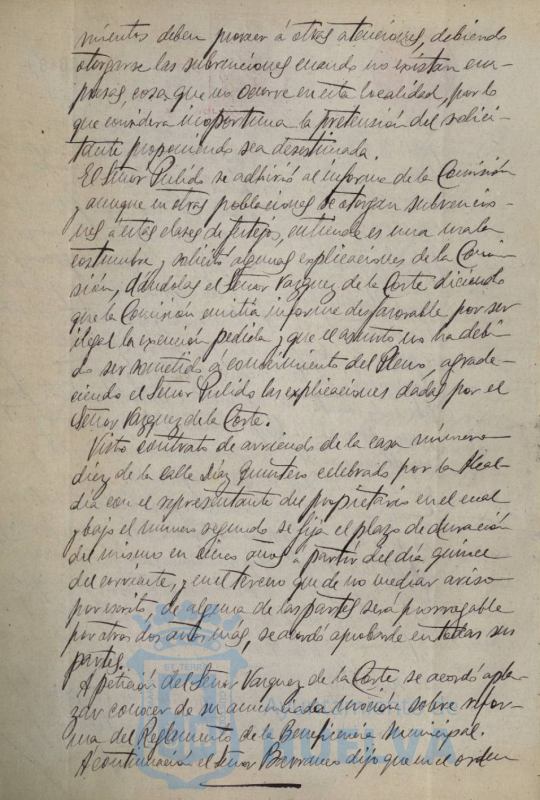 mientos deben proveer á otras atenciones, debiendo
otorgarse las subvenciones cuando no existan em-
presas, cosa que no ocurre en esta localidad, por lo
que considera inoportuna la pretensión del solici-
tante proponiendo sea desestimada.
El Señor Pulido se adhirió al informe de la Comisión
y aunque en otras poblaciones se otorgan subvencio-
nes a estas clases de festejos, entiende es una mala
costumbre y solicitó algunas explicaciones de la Comi-
sión, dándolas el Señor Vazquez de la Corte diciendo
que la Comisión emitía informe desfavorable por ser
ilegal la exención pedida y que el asunto no ha debi-
do ser sometido á conocimiento del Pleno, agrade-
ciendo el Señor Pulido las explicaciones dadas por el
Señor Vazquez de la Corte.
Visto contrato de arriendo de la casa número
diez de la calle Díaz Quintero celebrado por la Alcal-
día con el representante del propietario en el cual
y bajo el número segundo se fija el plazo de duración
del mismo en cinco años a partir del día quince
del corriente, y en el tercero que de no mediar aviso
por escrito, de alguna de las partes será prorrogable
por otros dos años más, se acordó aprobarde en todas sus
partes.
A petición del Señor Vazquez de la Corte se acordó apla-
zar conocer de su anunciada moción sobre refor-
ma del Reglamento de la Beneficencia Municipal.
A continuación el Señor Barranco dijo que en el orden
ET TERRÆ
HUELVA